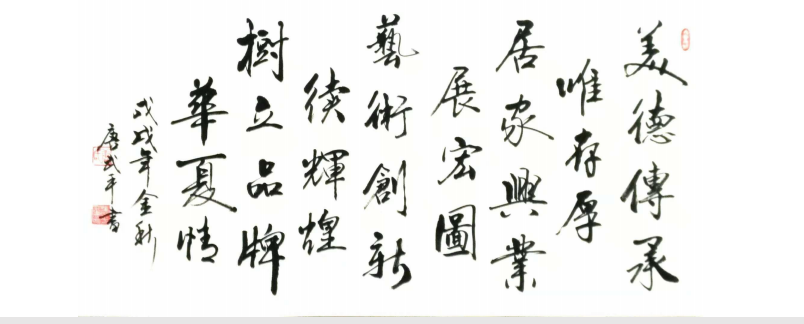 美德傳承
唯存厚
居家興業
展宏圖
藝術創新
續輝煌
樹立品牌
華夏情
戊戌年金秋
唐武平書